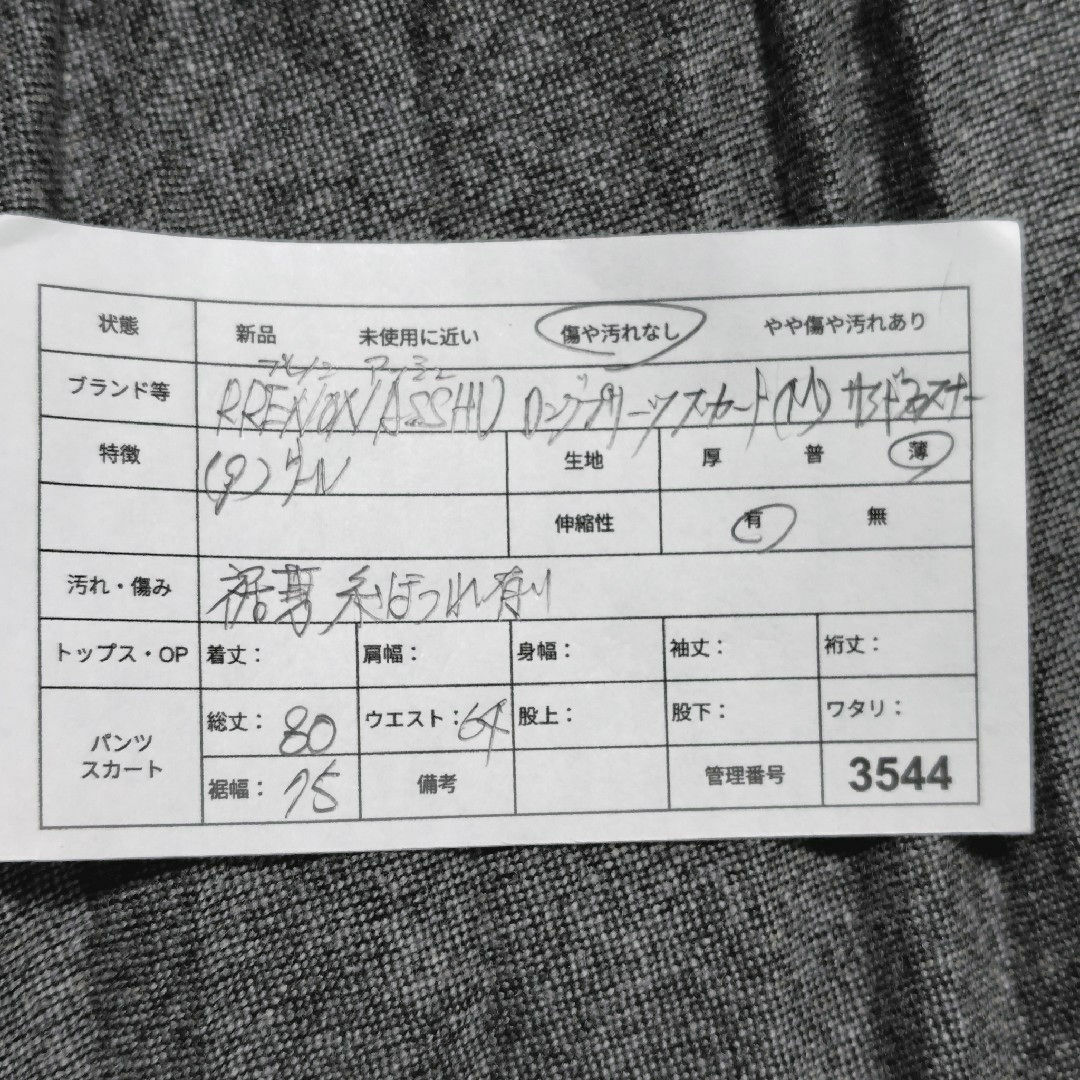 状態 新品 未使用に近い 傷や汚れなし やや傷や汚れあり
ブランド等 RRENON ASSHU ロングプリーツスカート(M) サイドファスナー
特徴 ウール 生地 厚 普 薄
伸縮性 有 無
汚れ・傷み 裾裏 糸ほつれ有り
トップス・OP 着丈： 肩幅： 身幅： 袖丈： 裄丈：
パンツ スカート 総丈：80 ウエスト：64 股上： 股下： ワタリ：
裾幅：75 備考 管理番号 3544